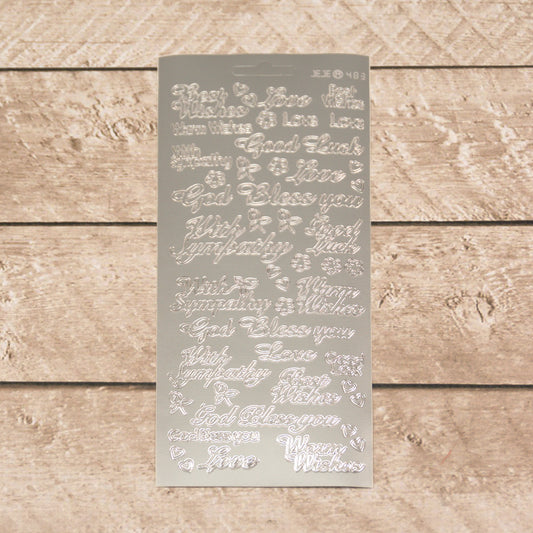 JEJE 483
Best
Wishes
Love
Best
Wishes
Warm Wishes
Love
Love
Good Luck
With
Sympathy
Love
God Bless you
With
Sympathy
Good
Luck
With
Sympathy
Warm
Wishes
God Bless you
With
Sympathy
Love
Good
Luck
Best
Wishes
God Bless you
God bless you
Love
Warm
Wishes